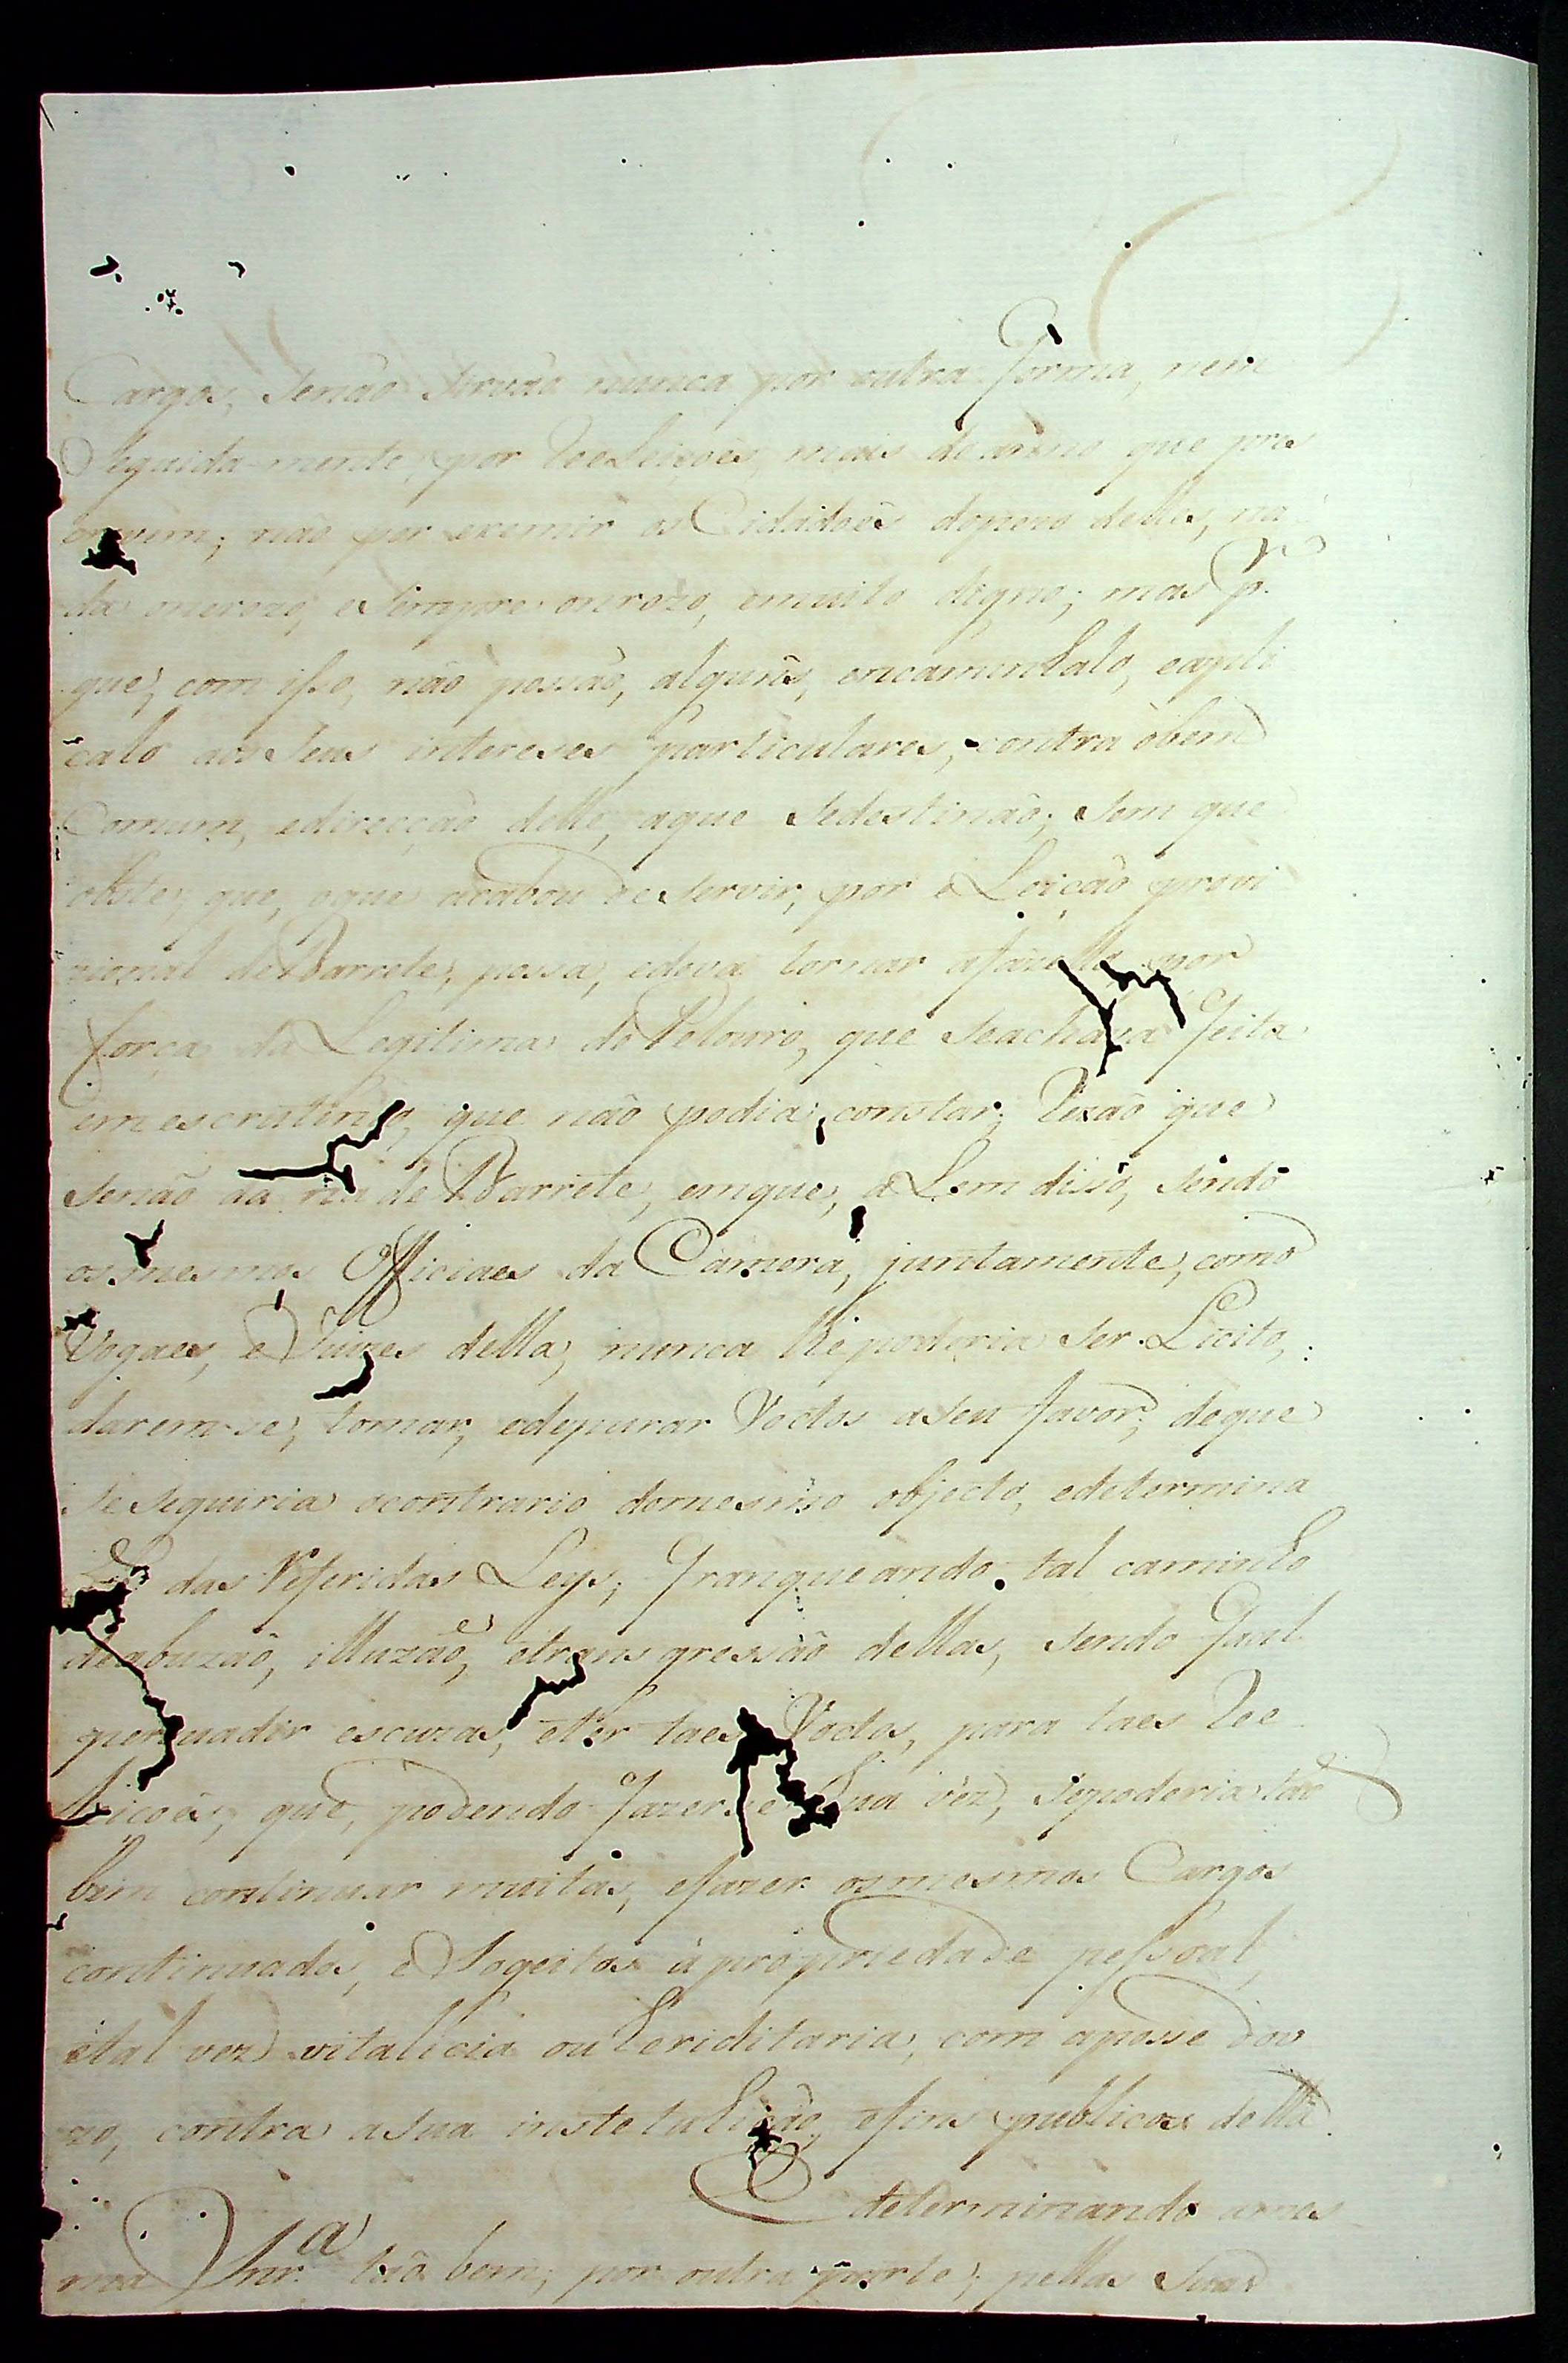 Cargos, Senão Sirvão nunca por outra Forma, nem
Seguida-mente, por ReeLeiçoẽs, mais de anno que pres
não por exemir os Cidadoẽs dopezo delles, na
da onerozo, eSempre onrozo, emuito digno; mas p.ª
que, com isso, não possão, alguns, encaminhalo, eapli
calo aos Seus intereses particulares, contra òbem
Comum, edirecção delle, aque Sedestinão; Sem que
obste, que, oque acabou deServir, por èLeicão provi
zional de Barrete, possa, edeva tornar afazello por
força da Legitima do Pelouro, que Seachava Feita
em escrutinio, que não podia constar; Rezão que
Senão na de Barrete, emque, aLem disso, Sendo
os mesmos Officiaes da Camera, juntamente, como
Vogaes, e Juizes della, nunca lhe poderia Ser Licito,
darem-se, tomar, edepurar Voctos aSeu favor; deque
Se Seguiria ocontrario domesmo objecto, edetermina
das Referidas Leys; Franqueando tal caminho
deabuzão, illuzão, etransgressão dellas, Sendo Facil
persuadir escuzas, eter taes Voctos, para taes Ree
leicoẽs, que, podendo Fazerse hũa vez, Sepoderia tão
bem continuar muitas, efazer osmesmos Cargos
continuados, e Sogeitos àpropriedade pessoal,
etal vez vitalicia ou heriditaria, com aposse do v
zo, contra aSua instetuhição, efins publicos della.
E determinando ames
ma Snr.ª tão bem, por outra parte, pellas Suas